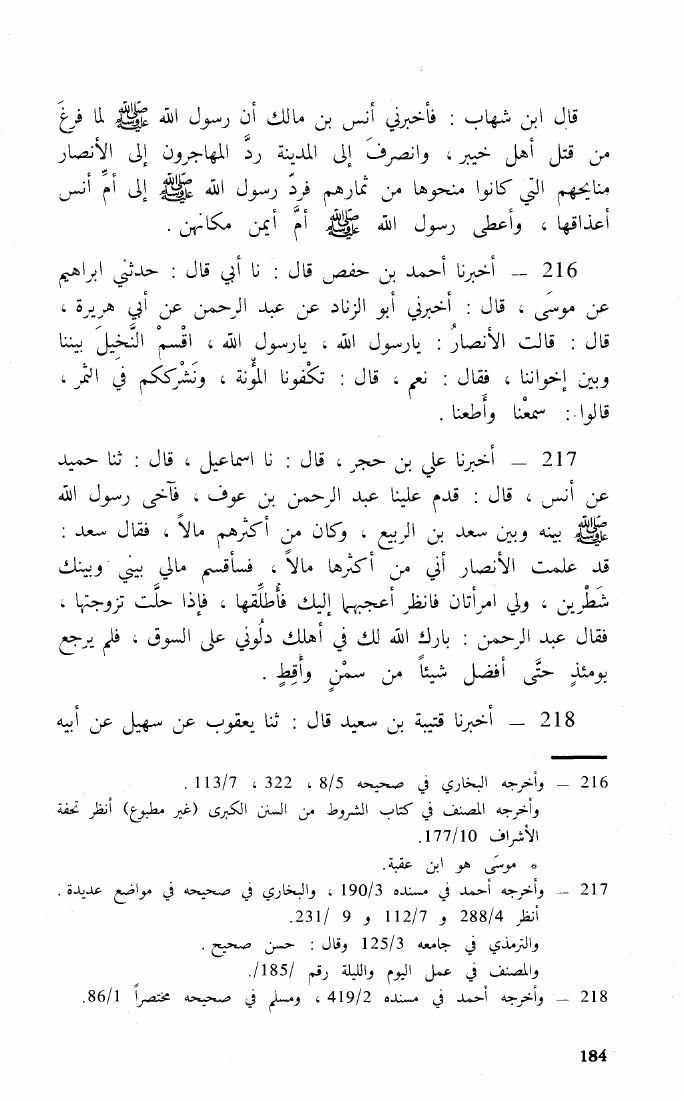 قال ابن شهاب : فأخبرني أنس بن مالك أن رسول الله ﷺ لما فرغَ
من قتل أهل خيبر ، وانصرفَ إلى المدينة ردَّ المهاجرون إلى الأنصار
منايحهم التي كانوا منحوها من ثمارهم فردّ رسول الله ﷺ إلى أمِّ أنس
أعذاقها ، وأعطى رسول الله ﷺ أمَّ أيمن مكانهن .
216 – أخبرنا أحمد بن حفص قال : نا أبي قال : حدثني ابراهيم
عن موسَى ، قال : أخبرني أبو الزناد عن عبد الرحمن عن أبي هريرة ،
قال : قالت الأنصارُ : يارسول الله ، يارسول الله ، اقْسمْ النَّخيلَ بيننا
وبين إخواننا ، فقال : نعم ، قال : تكْفونا المؤُنة ، ونَشْرككم في الثمر ،
قالوا : سمعْنا وأَطعنا .
217 – أخبرنا علي بن حجر ، قال : نا اسماعيل ، قال : ثنا حميد
عن أنس ، قال : قدم علينا عبد الرحمن بن عوف ، فآخى رسول الله
ﷺ بينه وبين سعد بن الربيع ، وكان من أكثرهم مالاً ، فقال سعد :
قد علمت الأنصار أني من أكثرها مالاً ، فسأقسم مالي بيني وبينك
شَطْرين ، ولي امرأتان فانظر أعجبهما إليك فأُطلِّقها ، فإذا حلَّت تزوجتها ،
فقال عبد الرحمن : بارك الله لك في أهلك دلُوني على السوق ، فلم يرجع
يومئذٍ حتَّى أفضل شيئاً من سمْنٍ وأَقِطٍ .
218 – أخبرنا قتيبة بن سعيد قال : ثنا يعقوب عن سهيل عن أبيه
216 – وأخرجه البخاري في صحيحه 8/5 ، 322 ، 113/7 .
وأخرجه المصنف في كتاب الشروط من السنن الكبرى (غير مطبوع) أنظر تحفة
الأشراف 177/10.
* موسَى هو ابن عقبة.
217 – وأخرجه أحمد في مسنده 190/3 ، والبخاري في صحيحه في مواضع عديدة .
أنظر 288/4 و 112/7 و 9 /231.
والترمذي في جامعه 125/3 وقال : حسن صحيح .
والمصنف في عمل اليوم والليلة رقم /185/.
218 – وأخرجه أحمد في مسنده 419/2 ، ومسلم في صحيحه مختصراً 86/1.
184